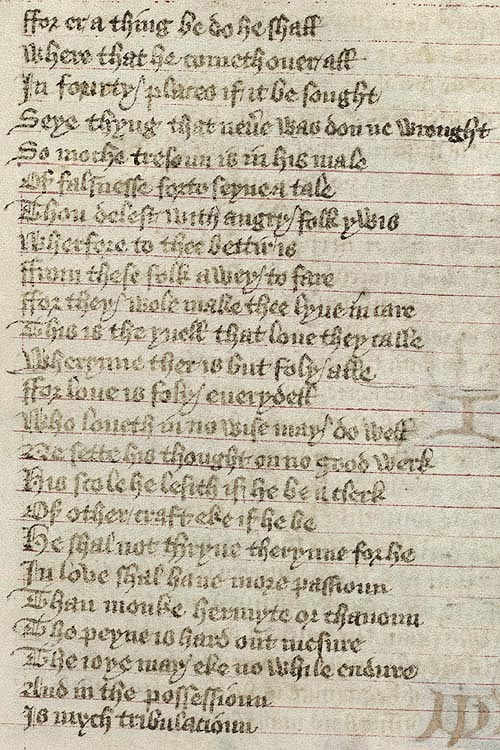 ffor er a thing be do he shall
Where that he cometh ouer all
In fourty places if it be sought
Seye thyng that neuer was don ne wrought
So moche tresoun is in his male
Of falsnesse forto seyne a tale
Thou delest with angry folk ywis
Wherfore to thee bettir is
ffrom these folk awey to fare
ffor they wole make thee lyue in care
This is the yuell that loue they calle
Wherynne ther is but foly alle
ffor loue is foly euerydell
Who loueth in no wise may do well
Ne sette his thought on no good werk
His scole he lesith if he be a clerk
Of other craft eke if he be
He shal not thryue therynne for he
In loue shal haue more passioun
Than monke hermyte or chanoun
The peyne is hard out mesure
The ioye may eke no while endure
And in the possessioun
Is mych tribulacioun